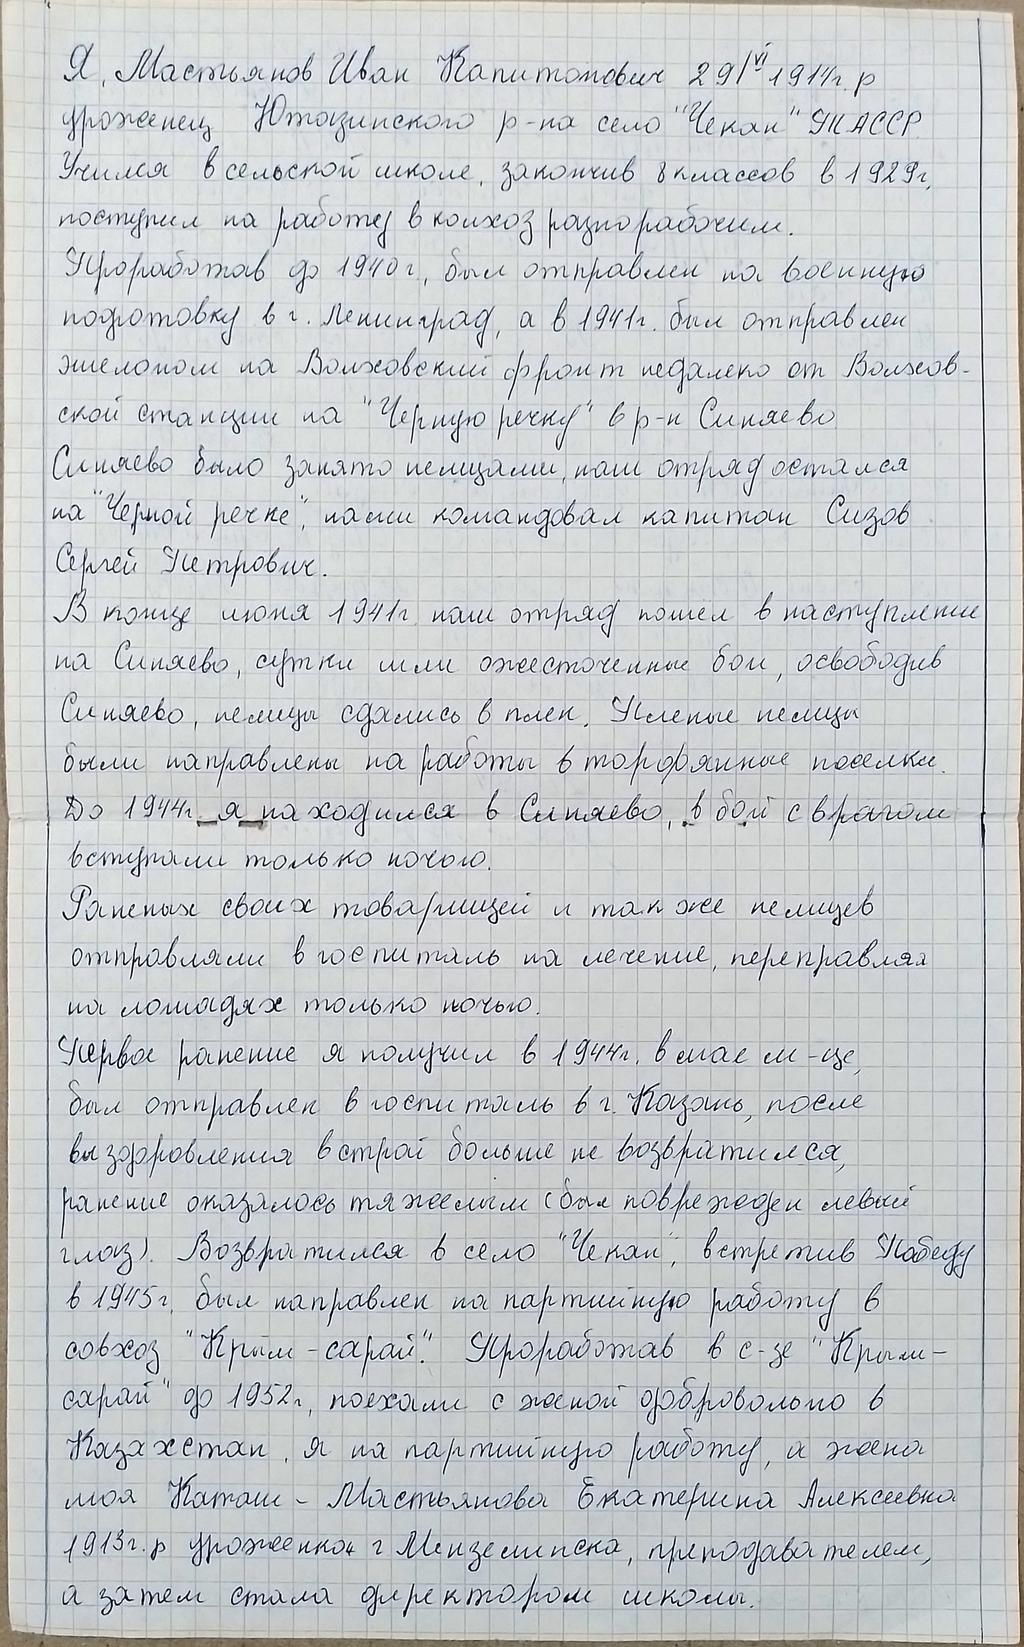 Я, Мастьянов Иван Капитонович 29/VI 1914г. р
уроженец Ютазинского р-на село "Чекан" ТАССР
Учился в сельской школе, закончив 8 классов в 1929г,
поступил на работу в колхоз разнорабочим.
Проработав до 1940г, был отправлен на военную
подготовку в г. Ленинград, а в 1941г. был отправлен
эшелоном на Волховский фронт недалеко от Волхов-
ской станции на "Черную речку" в р-н Синяево
Синяево было занято немцами, наш отряд остался
на "Черной речке", нами командовал капитан Сизов
Сергей Петрович.
В конце июня 1941г наш отряд пошёл в наступление
на Синяево, сутки шли ожесточенные бои, освободив
Синяево, немцы сдались в плен. Пленые немцы
были направлены на работы в торфянные поселки.
До 1944г. я находился в Синяево, в бой с врагом
вступали только ночью.
Раненых своих товарищей и также немцев
отправляли в госпиталь на лечение, переправляя
на лошадях только ночью.
Первое ранение я получил в 1944г. в мае м-це,
был отправлен в госпиталь в г. Казань, после
выздоровления в строй больше не возвратился,
ранение оказалось тяжелым (был поврежден левый
глаз). Возвратился в село "Чекан", встретив Победу
в 1945г, был направлен на партийную работу в
совхоз "Крым-сарай". Проработав в с-зе "Крым-
сарай" до 1952г, поехали с женой добровольно в
Казахстан, я на партийную работу, а жена
моя Каташ - Мастьянова Екатерина Алексеевна
1913г. р уроженка г Мензелинска, преподавателем,
а затем стала директором школы.